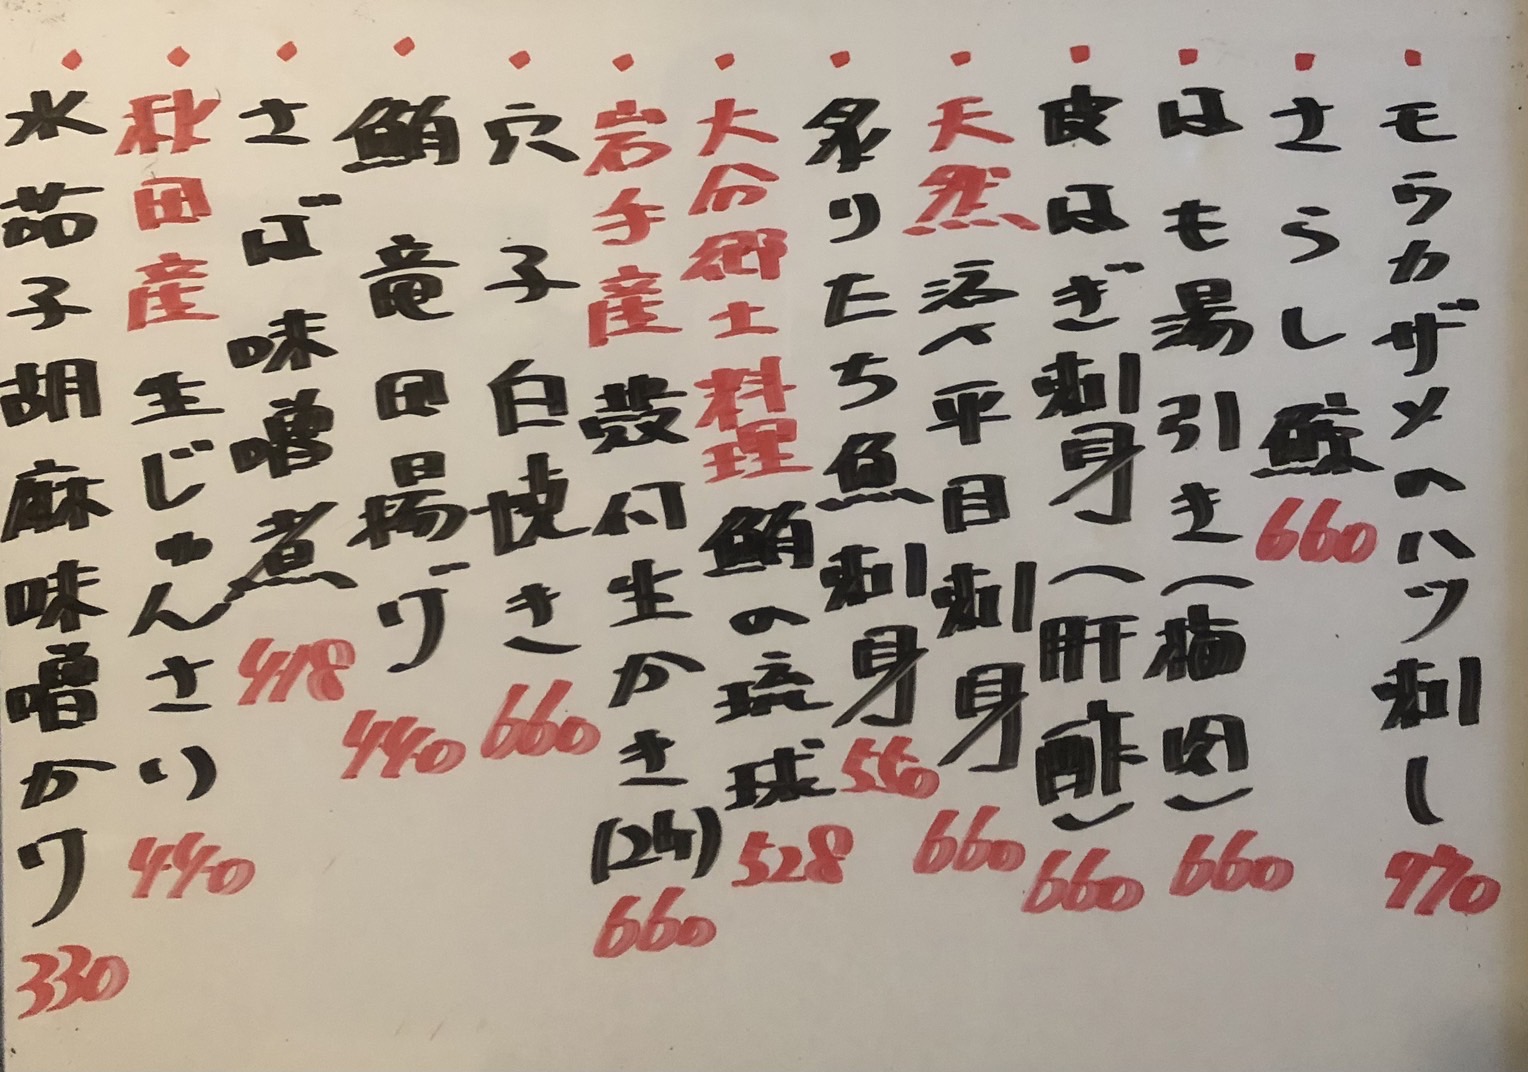 ・モウカザメのハツ刺し 770
・さらし鯨 660
・はも湯引き(梅肉) 660
・皮はぎ刺身(肝酢) 660
・天然活〆平目刺身 660
・炙りたち魚刺身 550
・大分郷土料理鮪の琉球 528
・岩手産殻付生かき(2ケ) 660
・穴子白焼き 660
・鮪竜田揚げ 440
・さば味噌煮 418
・秋田産生じゅんさい 440
・水茄子胡麻味噌かけ 330